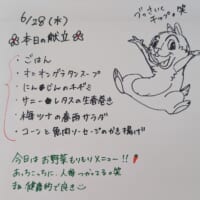 6/28(水)
ぶっさいく
チップ。笑
本日の献立
・ごはん
・オニオングラタンスープ
・にんじんのチヂミ
・サニーレタスの生春巻き
・梅ツナの春雨サラダ
・コーンと魚肉ソーセージのかき揚げ
今日はお野菜もりもりメニュー!!
あっちこっちに、人参つかってる。笑
まぁ健康的で良き